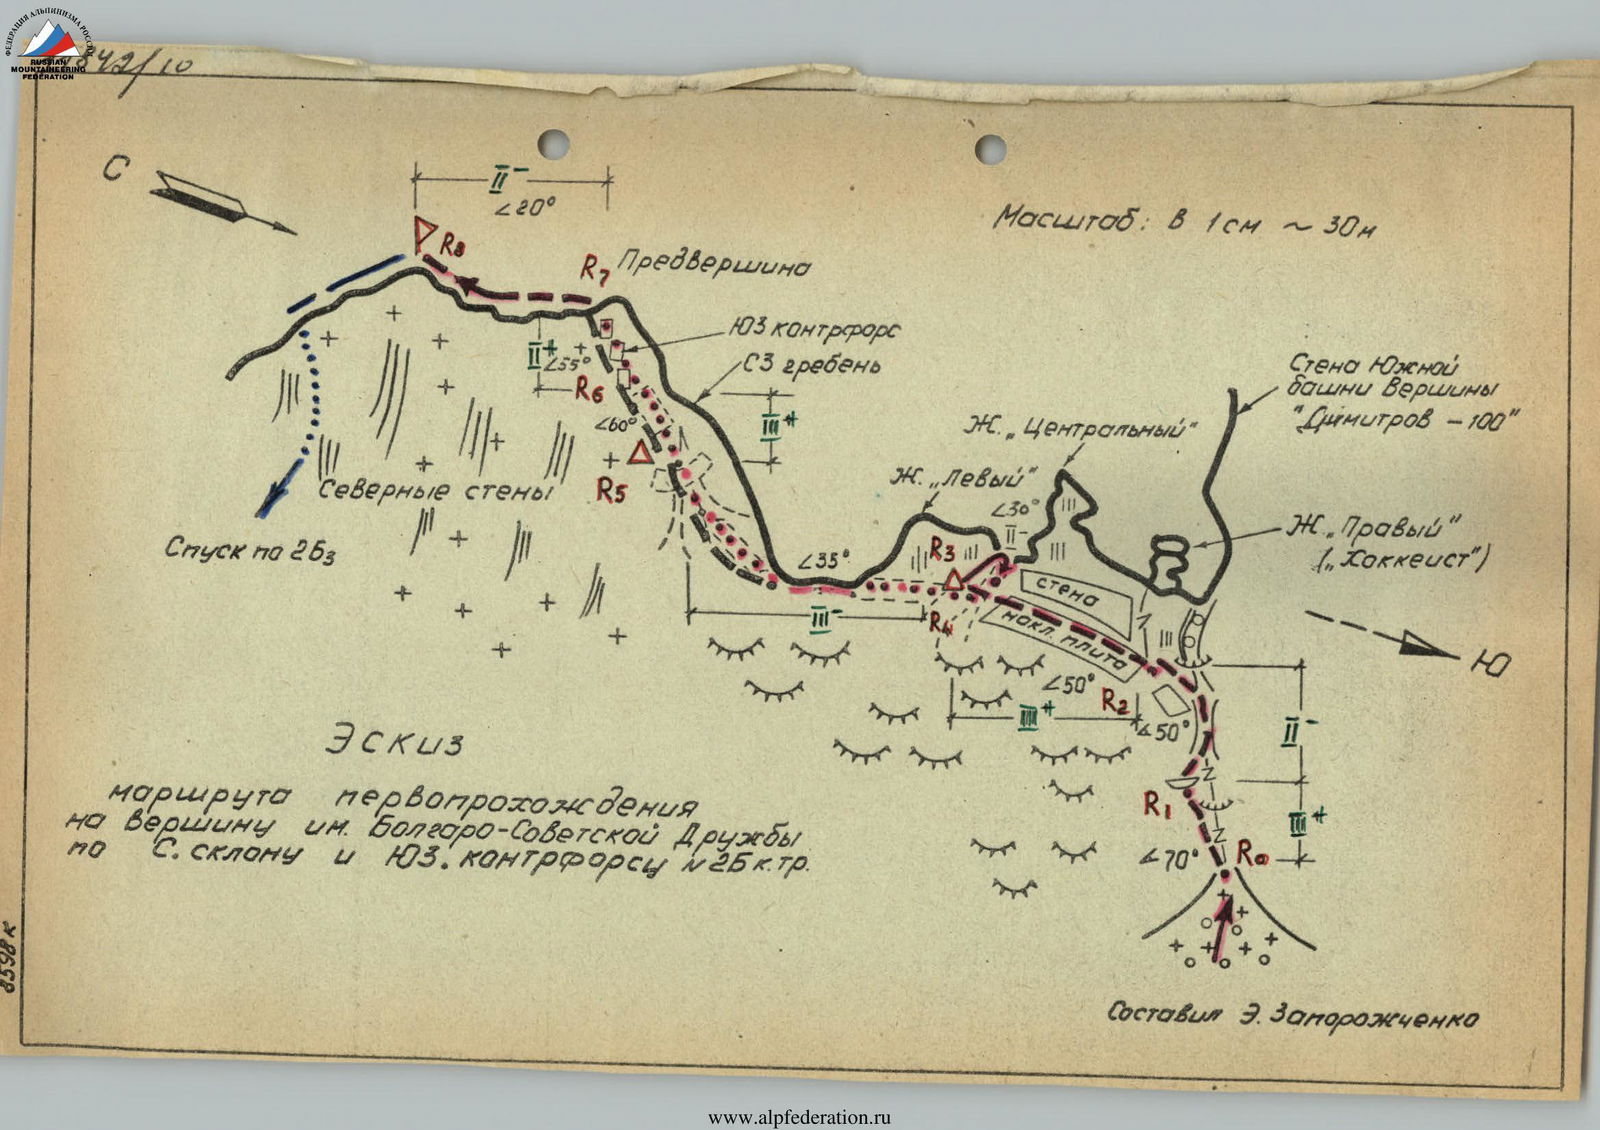 ФЕДЕРАЦИЯ АЛЬПИНИЗМА РОССИИ
RUSSIAN
MOUNTAINEERING
FEDERATION
С
II-
∠20°
Масштаб: в 1 см ~ 30 м
R8
R7
Предвершина
ЮЗ контрфорс
СЗ гребень
II+
∠55°
R6
III+
∠60°
R5
Стена Южной
башни вершины
"Димитров - 100"
Ж. „Центральный"
Ж. „Левый"
∠30°
II-
Ж. „Правый"
(„Хоккеист")
Северные стены
Спуск по 2Бз
∠35°
R3
стена
III-
R4
накл. плита
Ю
∠50°
R2
III+
∠50°
II-
R1
III+
∠70°
R0
Эскиз
маршрута первопрохождения
на вершину им. Болгаро-Советской Дружбы
по С. склону и ЮЗ. контрфорсу ~ 2Б к.тр.
Составил Э. Запорожченко
8598 к
www.alpfederation.ru